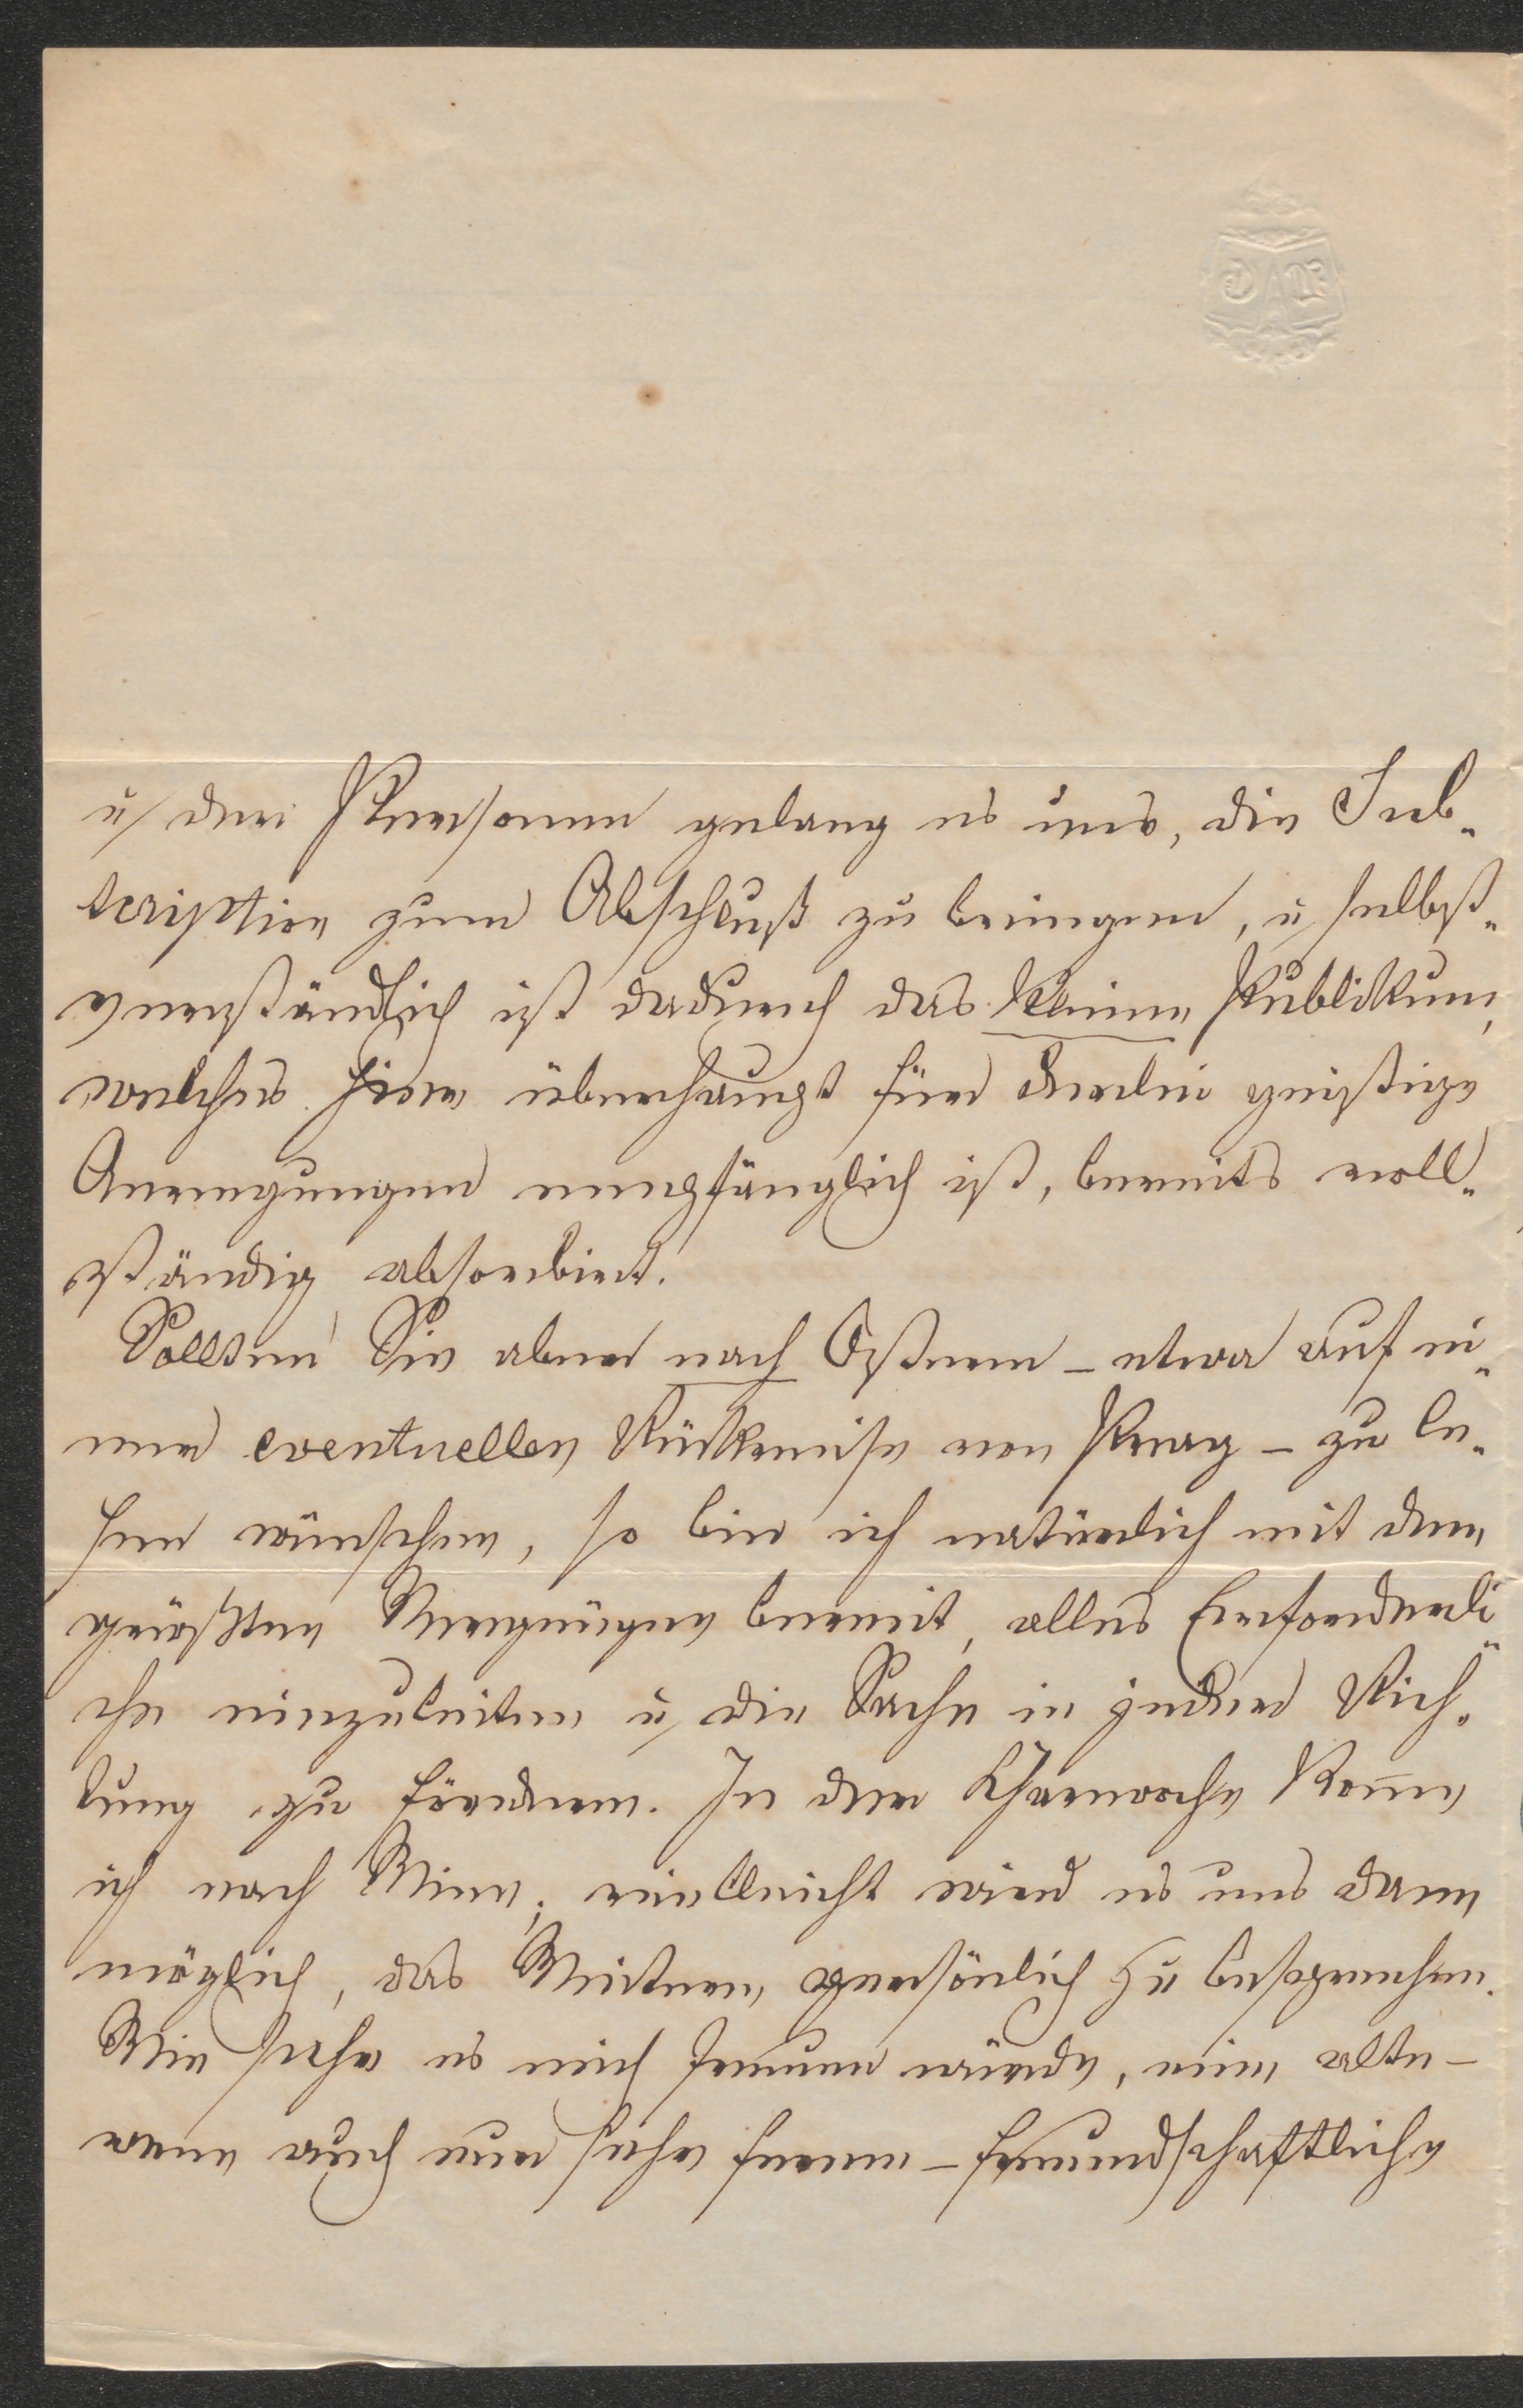 u. drei Personen gelang es uns, die Sub-
scription zum Abschluß zu bringen, u. selbst-
verständlich ist dadurch das kleine Publikum,
welches hier überhaupt für derlei geistige
Anregungen empfänglich ist, bereits voll-
ständig absorbirt.
Sollten Sie aber nach Ostern – etwa auf ei-
ner eventuellen Rückreise von Prag – zu le-
sen wünschen, so bin ich natürlich mit dem
größten Vergnügen bereit, alles Erforderli-
che einzuleiten u. die Sache in jeder Rich-
tung zu fördern. In der Charwoche kom̅e
ich nach Wien; vielleicht wird es uns dann
möglich, das Weitere persönlich zu besprechen.
Wie sehr es mich freuen würde, eine alte –
wenn auch nur sehr ferne – freundschaftliche